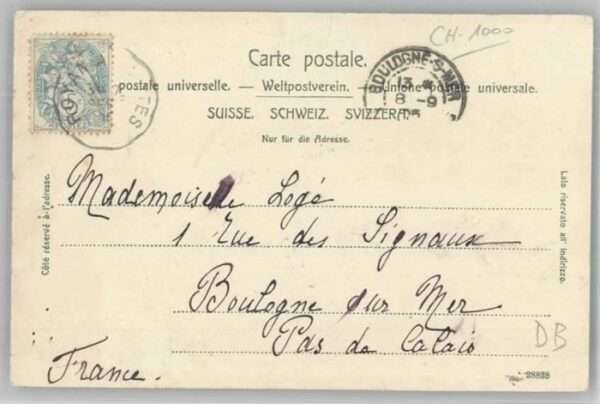 CH-1000
Carte postale.
postale universelle. — Weltpostverein. — Unione postale universale.
SUISSE. SCHWEIZ. SVIZZERA.
Nur für die Adresse.
BOULOGNE-S-MER
13
8-9
05
TES
Côté réservé à l'adresse.
Lato riservato all' indirizzo.
Mademoiselle Logé
1 Rue des Signaux
Boulogne sur Mer
Pas de Calais
France.
DB
28828